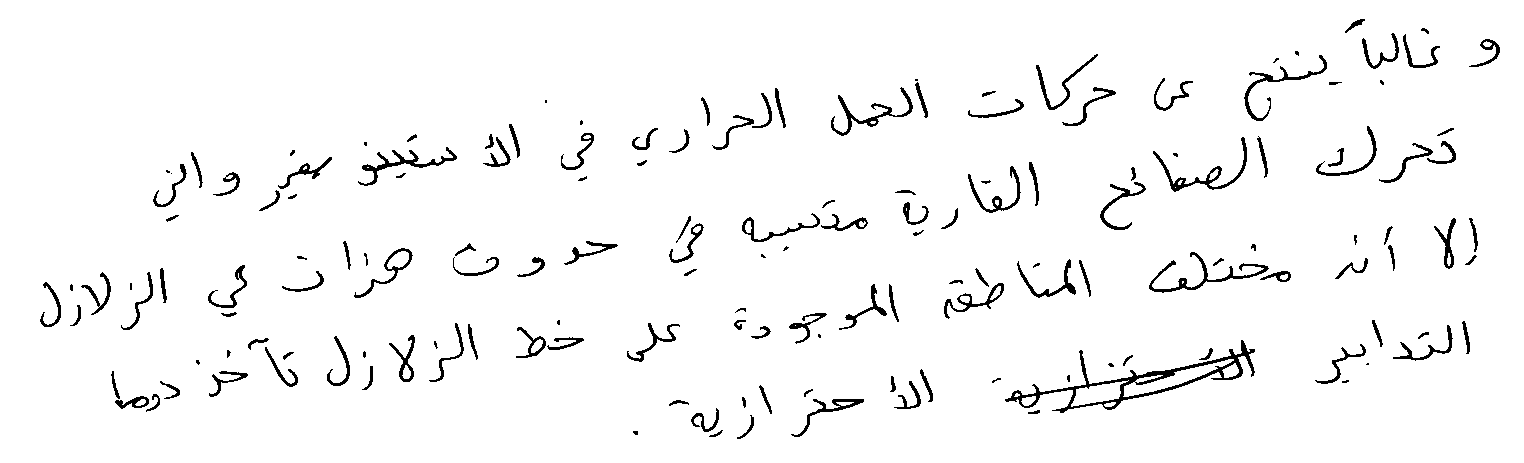 و غالباً ينتج عن حركات الحمل الحراري في الأستينو سفير والتي
تحرك الصفائح القارية متسببه في حدوث هزات هي الزلازل
إلا أنه مختلف المناطق الموجودة على خط الزلازل تآخذ دوما
التدابير الأحترازية الأحترازية .